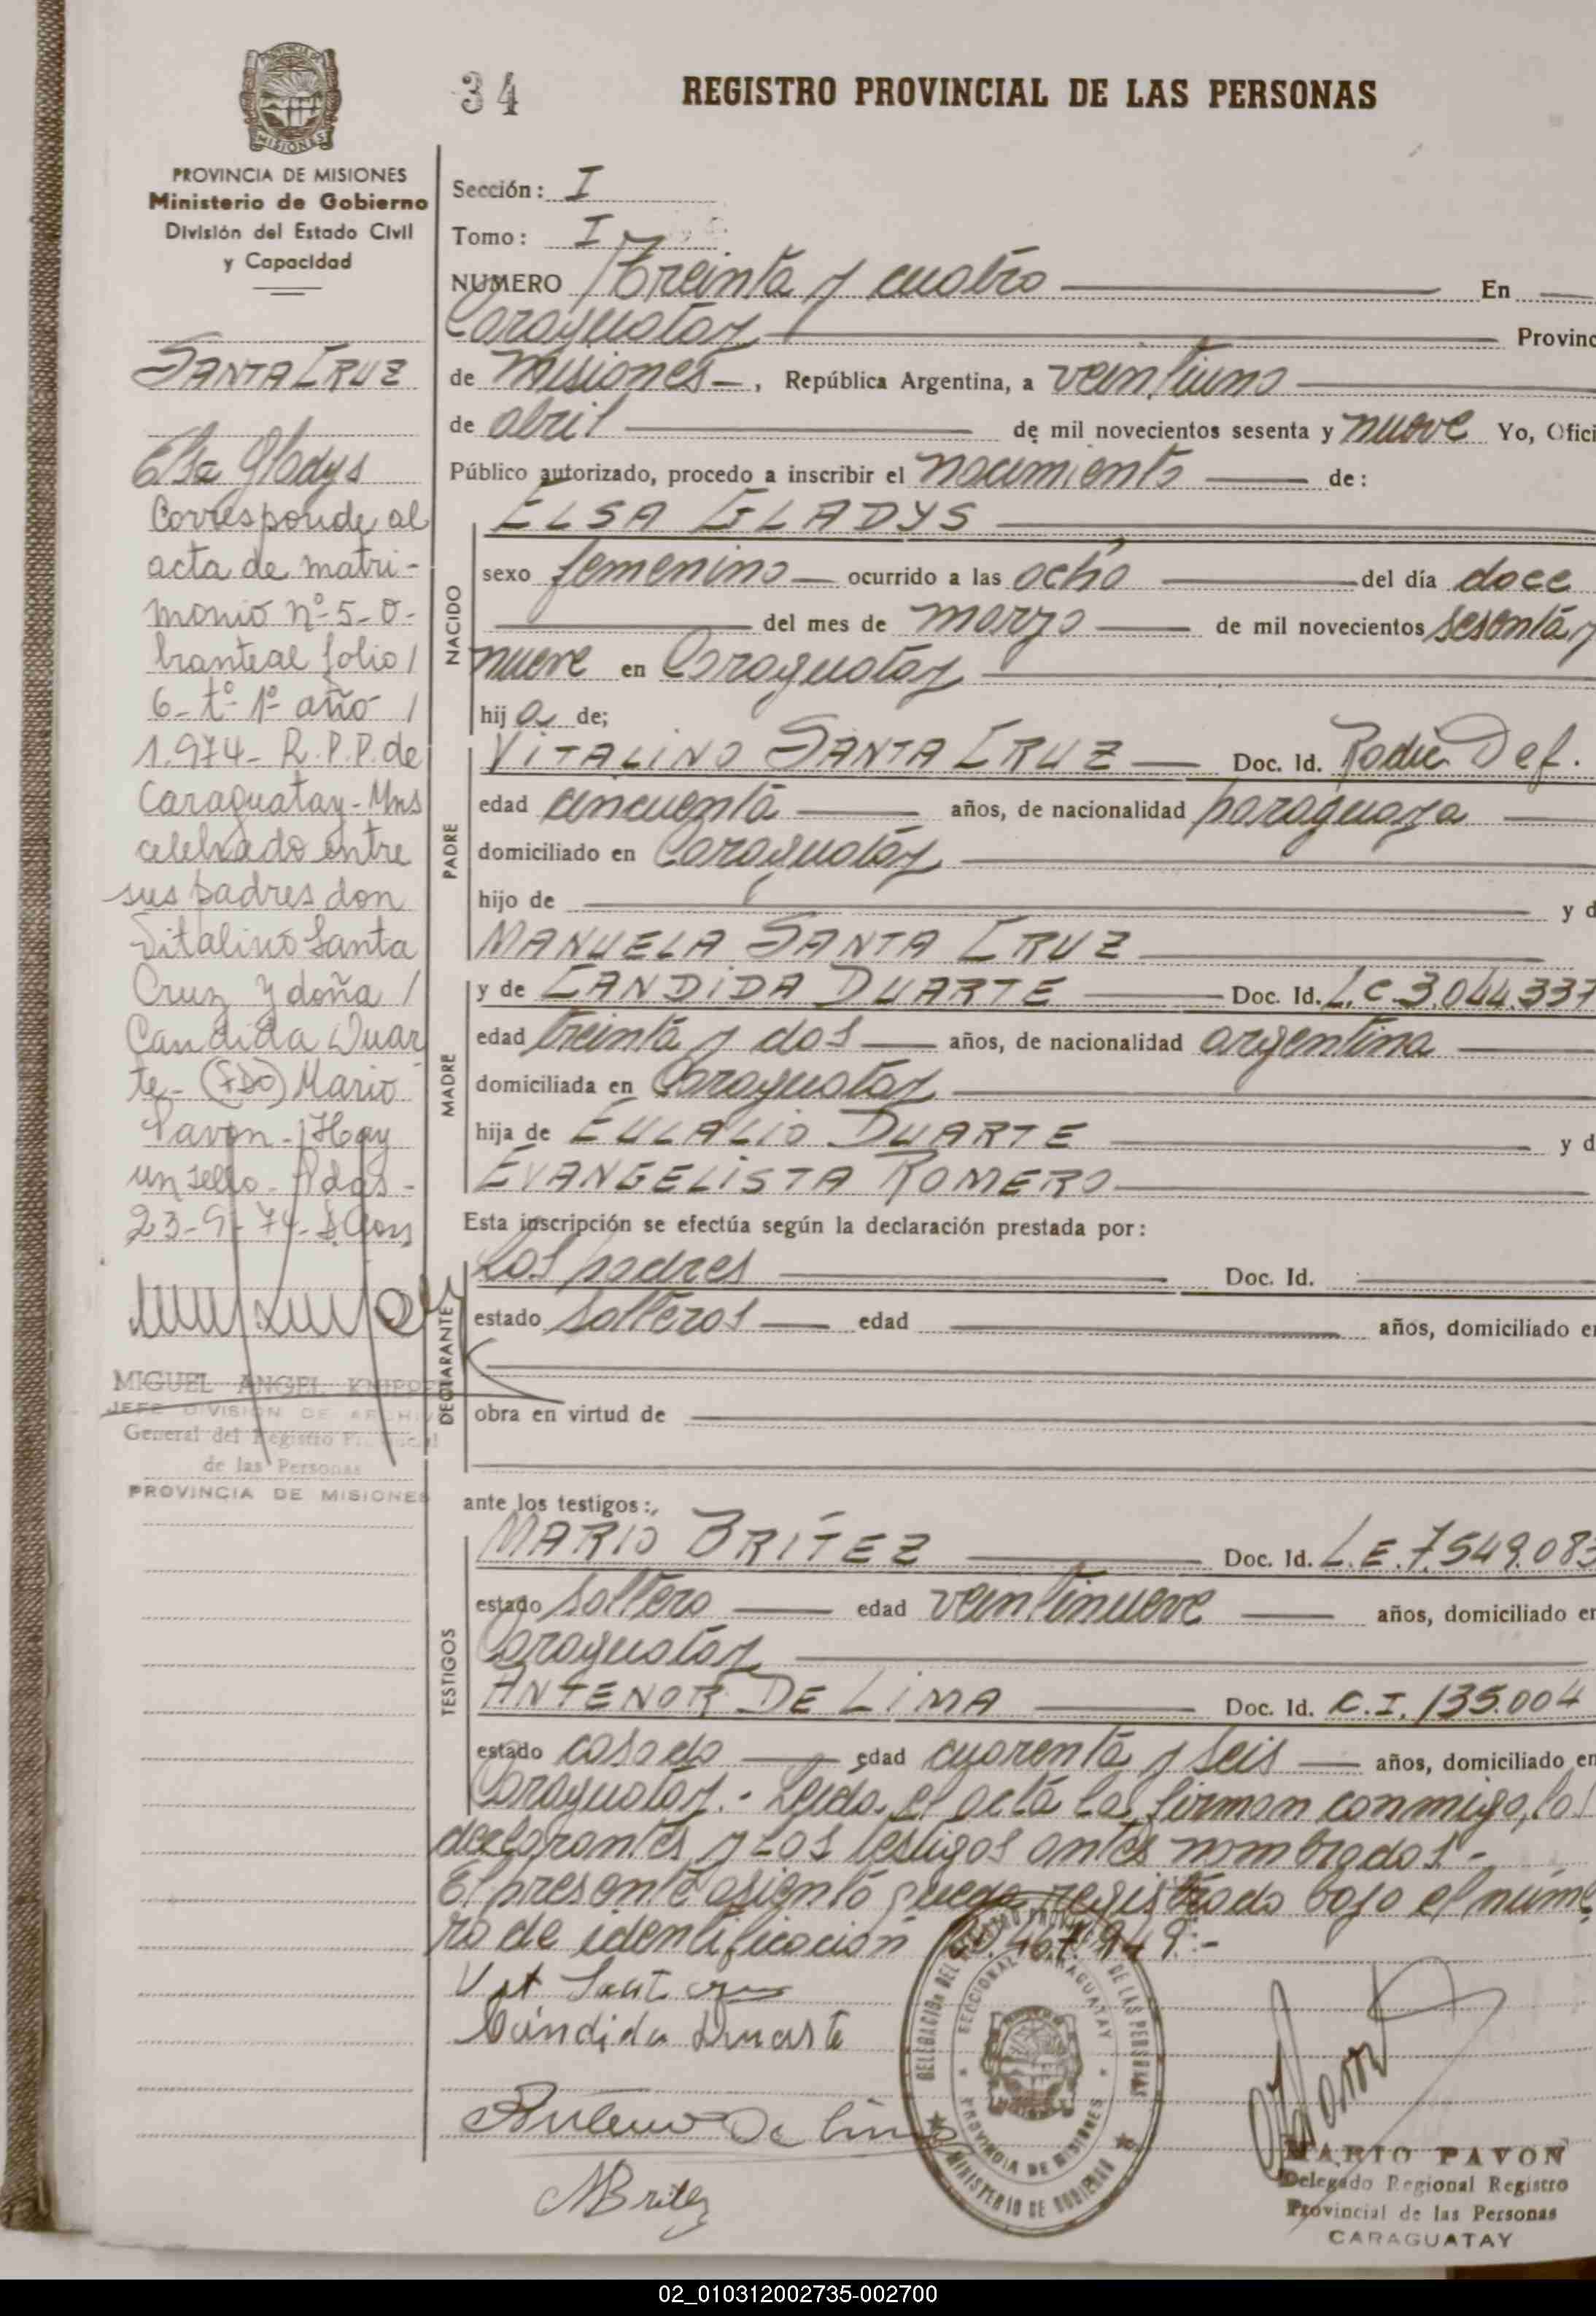 34
REGISTRO PROVINCIAL DE LAS PERSONAS
PROVINCIA DE MISIONES
Ministerio de Gobierno
División del Estado Civil
y Capacidad
SANTA CRUZ
Elsa Gladys
Corresponde al
acta de matri-
monio nº 5- o-
brante al folio /
6- tº- 1º- año- /
1.974- R.P.P. de
Caraguatay- Mns
celebrado entre
sus padres don
Vitalino Santa
Cruz y doña /
Candida Duar
te- (FDO) Mario
Pavon- / Hay
un sello- Pdas-
23-9-74-
MIGUEL ANGEL
JEFE DIVISION DE ARCHIV
General del Registro Provincial
de las Personas
PROVINCIA DE MISIONES
Sección: I
Tomo: I
NUMERO /treinta y cuatro En
Caraguatay Provinc
de Misiones-, República Argentina, a veintiuno
de abril de mil novecientos sesenta y nueve Yo, Ofici
Público autorizado, procedo a inscribir el nacimiento de:
NACIDO
ELSA GLADYS
sexo femenino ocurrido a las ocho del día doce
del mes de marzo de mil novecientos sesenta y
nueve en Caraguatay
hij a de;
PADRE
VITALINO SANTA CRUZ Doc. Id. Radic Def.
edad cincuenta años, de nacionalidad paraguaya
domiciliado en Caraguatay
hijo de y d
MANUELA SANTA CRUZ
MADRE
y de CANDIDA DUARTE Doc. Id. L.C. 3.044.337
edad treinta y dos años, de nacionalidad argentina
domiciliada en Caraguatay
hija de EULALIO DUARTE y d
EVANGELISTA ROMERO
Esta inscripción se efectúa según la declaración prestada por:
DECLARANTE
Los padres Doc. Id.
estado solteros edad años, domiciliado en
obra en virtud de
ante los testigos:
TESTIGOS
MARIO BRÍTEZ Doc. Id. L.E. 7.549.083
estado soltero edad veintinueve años, domiciliado en
Caraguatay
ANTENOR DE LIMA Doc. Id. C.I. 135.004
estado casado edad cuarenta y seis años, domiciliado en
Caraguatay.- Leida el acta la firman conmigo, los
declarantes y los testigos antes nombrados-
El presente asiento queda registrado bajo el núme
ro de identificación 20.467.949:-
Vit Santa cruz
Cándida Duarte
Antenor De Lima
MBritez
DELEGACION DEL REGISTRO PROVINCIAL DE LAS PERSONAS
SECCIONAL CARAGUATAY
PROVINCIA DE MISIONES
MINISTERIO DE GOBIERNO
MPavon
MARIO PAVON
Delegado Regional Registro
Provincial de las Personas
CARAGUATAY
02_010312002735-002700